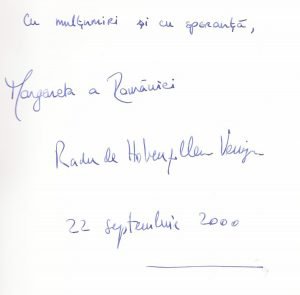 Cu mulțumiri și cu speranță,
Margareta a României
Radu de Hohenzollern Veringen
22 septembrie 2000